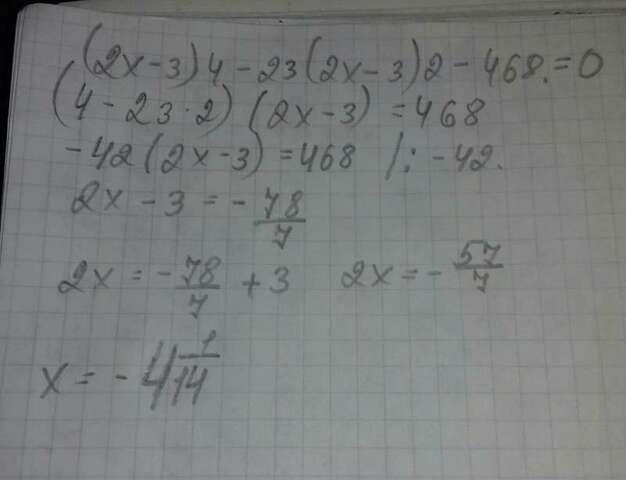 (2x-3)4-23(2x-3)2-468.=0
(4-23·2)(2x-3)=468
-42(2x-3)=468 /:-42.
2x-3=-78/7
2x=-78/7+3 2x=-57/7
x=-4 1/14